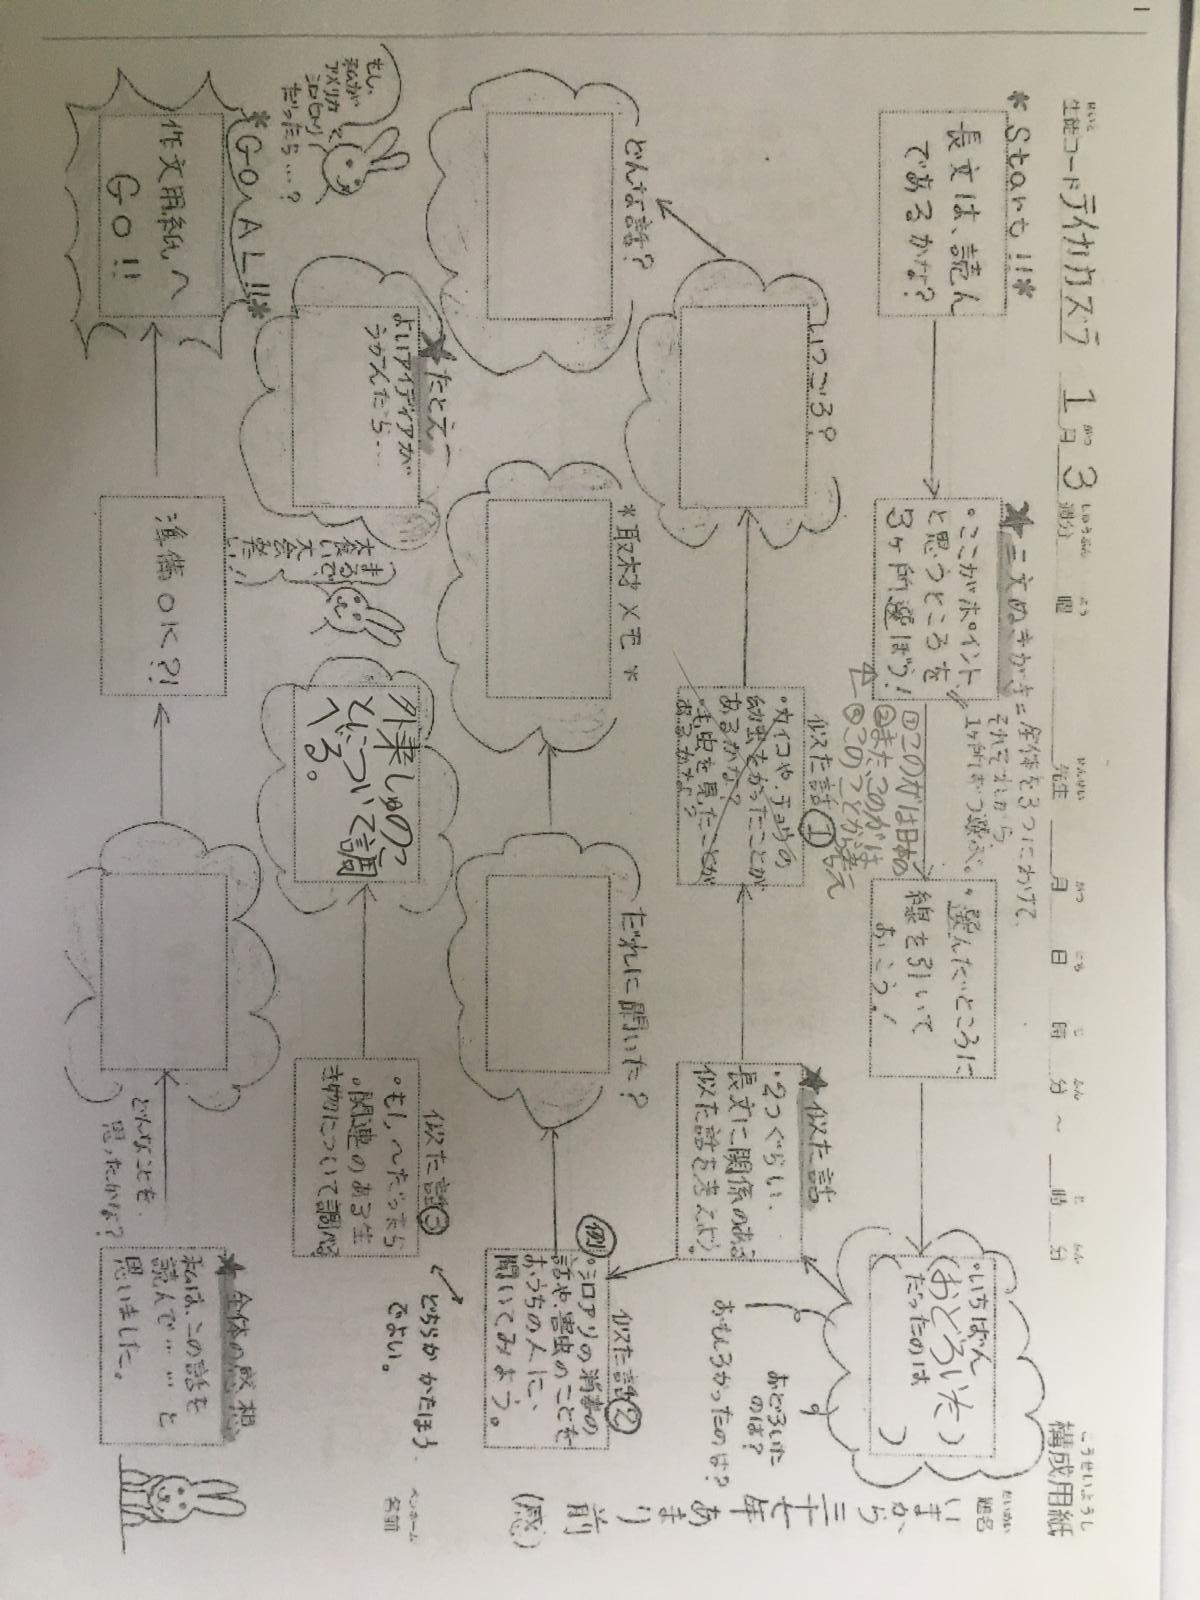 構成用紙
こうせいようし
生徒コード テイカカズラ 1月3週分 曜 先生 月 日 時 分 ～ 時 分
題名
いまから
三十七年
あまり
前
(感)
ペンネーム
名前
*Start!!*
長文は、読ん
であるかな?
★二文ぬきがき=全体を3つにわけて、
それぞれから
1ヶ所ずつ選ぶ。
・ここがポイント
と思うところを
3ヶ所選ぼう!
①このガは日本の
②また、このガは
・選んだところに
線を引いて
おこう!
・いちばん
(おどろいた)
だったのは
( )
おどろいた
のは?
おもしろかったのは?
★似た話
・2つぐらい、
長文に関係のある
似た話を考えよう。
似た話①
・カイコや、チョウの
幼虫をかったことが
あるかな?
・毛虫を見たことが
あるかな?
いつごろ?
どんな話?
似た話②
例・シロアリの消毒の
話や、害虫のことを
おうちの人に、
聞いてみよう。
だれに聞いた?
*取材メモ*
どちらか かたほう
でよい。
似た話③
・もし、～だったら
・関連のある生
き物について調べる
外来しゅのこ
とについて調
べる。
★たとえ
よいアイディアが
うかんだら…
まるで、
大食い
大会だ!!
もし、
私が
アメリカ
シロヒトリ
だったら…?
★全体の感想
私は、この話を
読んで……と
思いました。
どんなことを
思ったかな?
準備OK?!
*GOAL!!*
作文用紙へ
GO!!